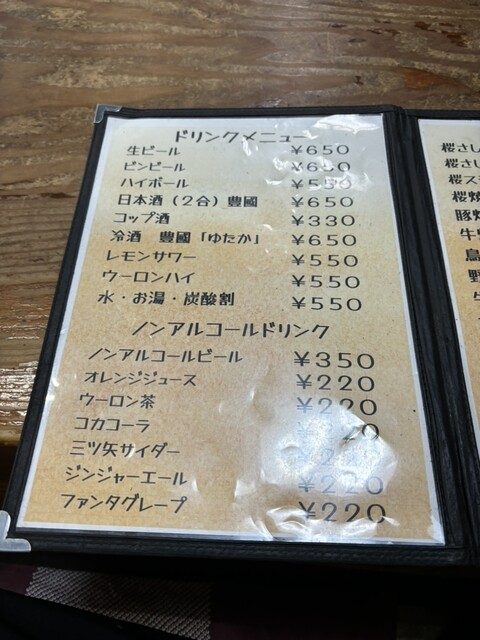 ドリンクメニュー
生ビール ¥650
ビンビール ¥650
ハイボール ¥550
日本酒（2合）豊國 ¥650
コップ酒 ¥330
冷酒 豊國「ゆたか」 ¥650
レモンサワー ¥550
ウーロンハイ ¥550
水・お湯・炭酸割 ¥550
ノンアルコールドリンク
ノンアルコールビール ¥350
オレンジジュース ¥220
ウーロン茶 ¥220
コカコーラ
三ツ矢サイダー
ジンジャーエール ¥220
ファンタグレープ ¥220
桜さし
桜さし
桜ス
桜焼
豚焼
牛
鳥
野